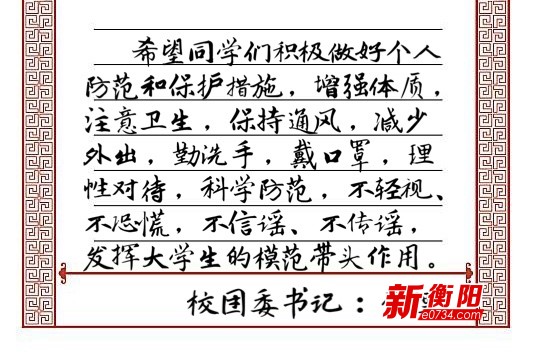 希望同学们积极做好个人
防范和保护措施，增强体质，
注意卫生，保持通风，减少
外出，勤洗手，戴口罩，理
性对待，科学防范，不轻视、
不恐慌，不信谣、不传谣，
发挥大学生的模范带头作用。
校团委书记：
新衡阳
e0734.com